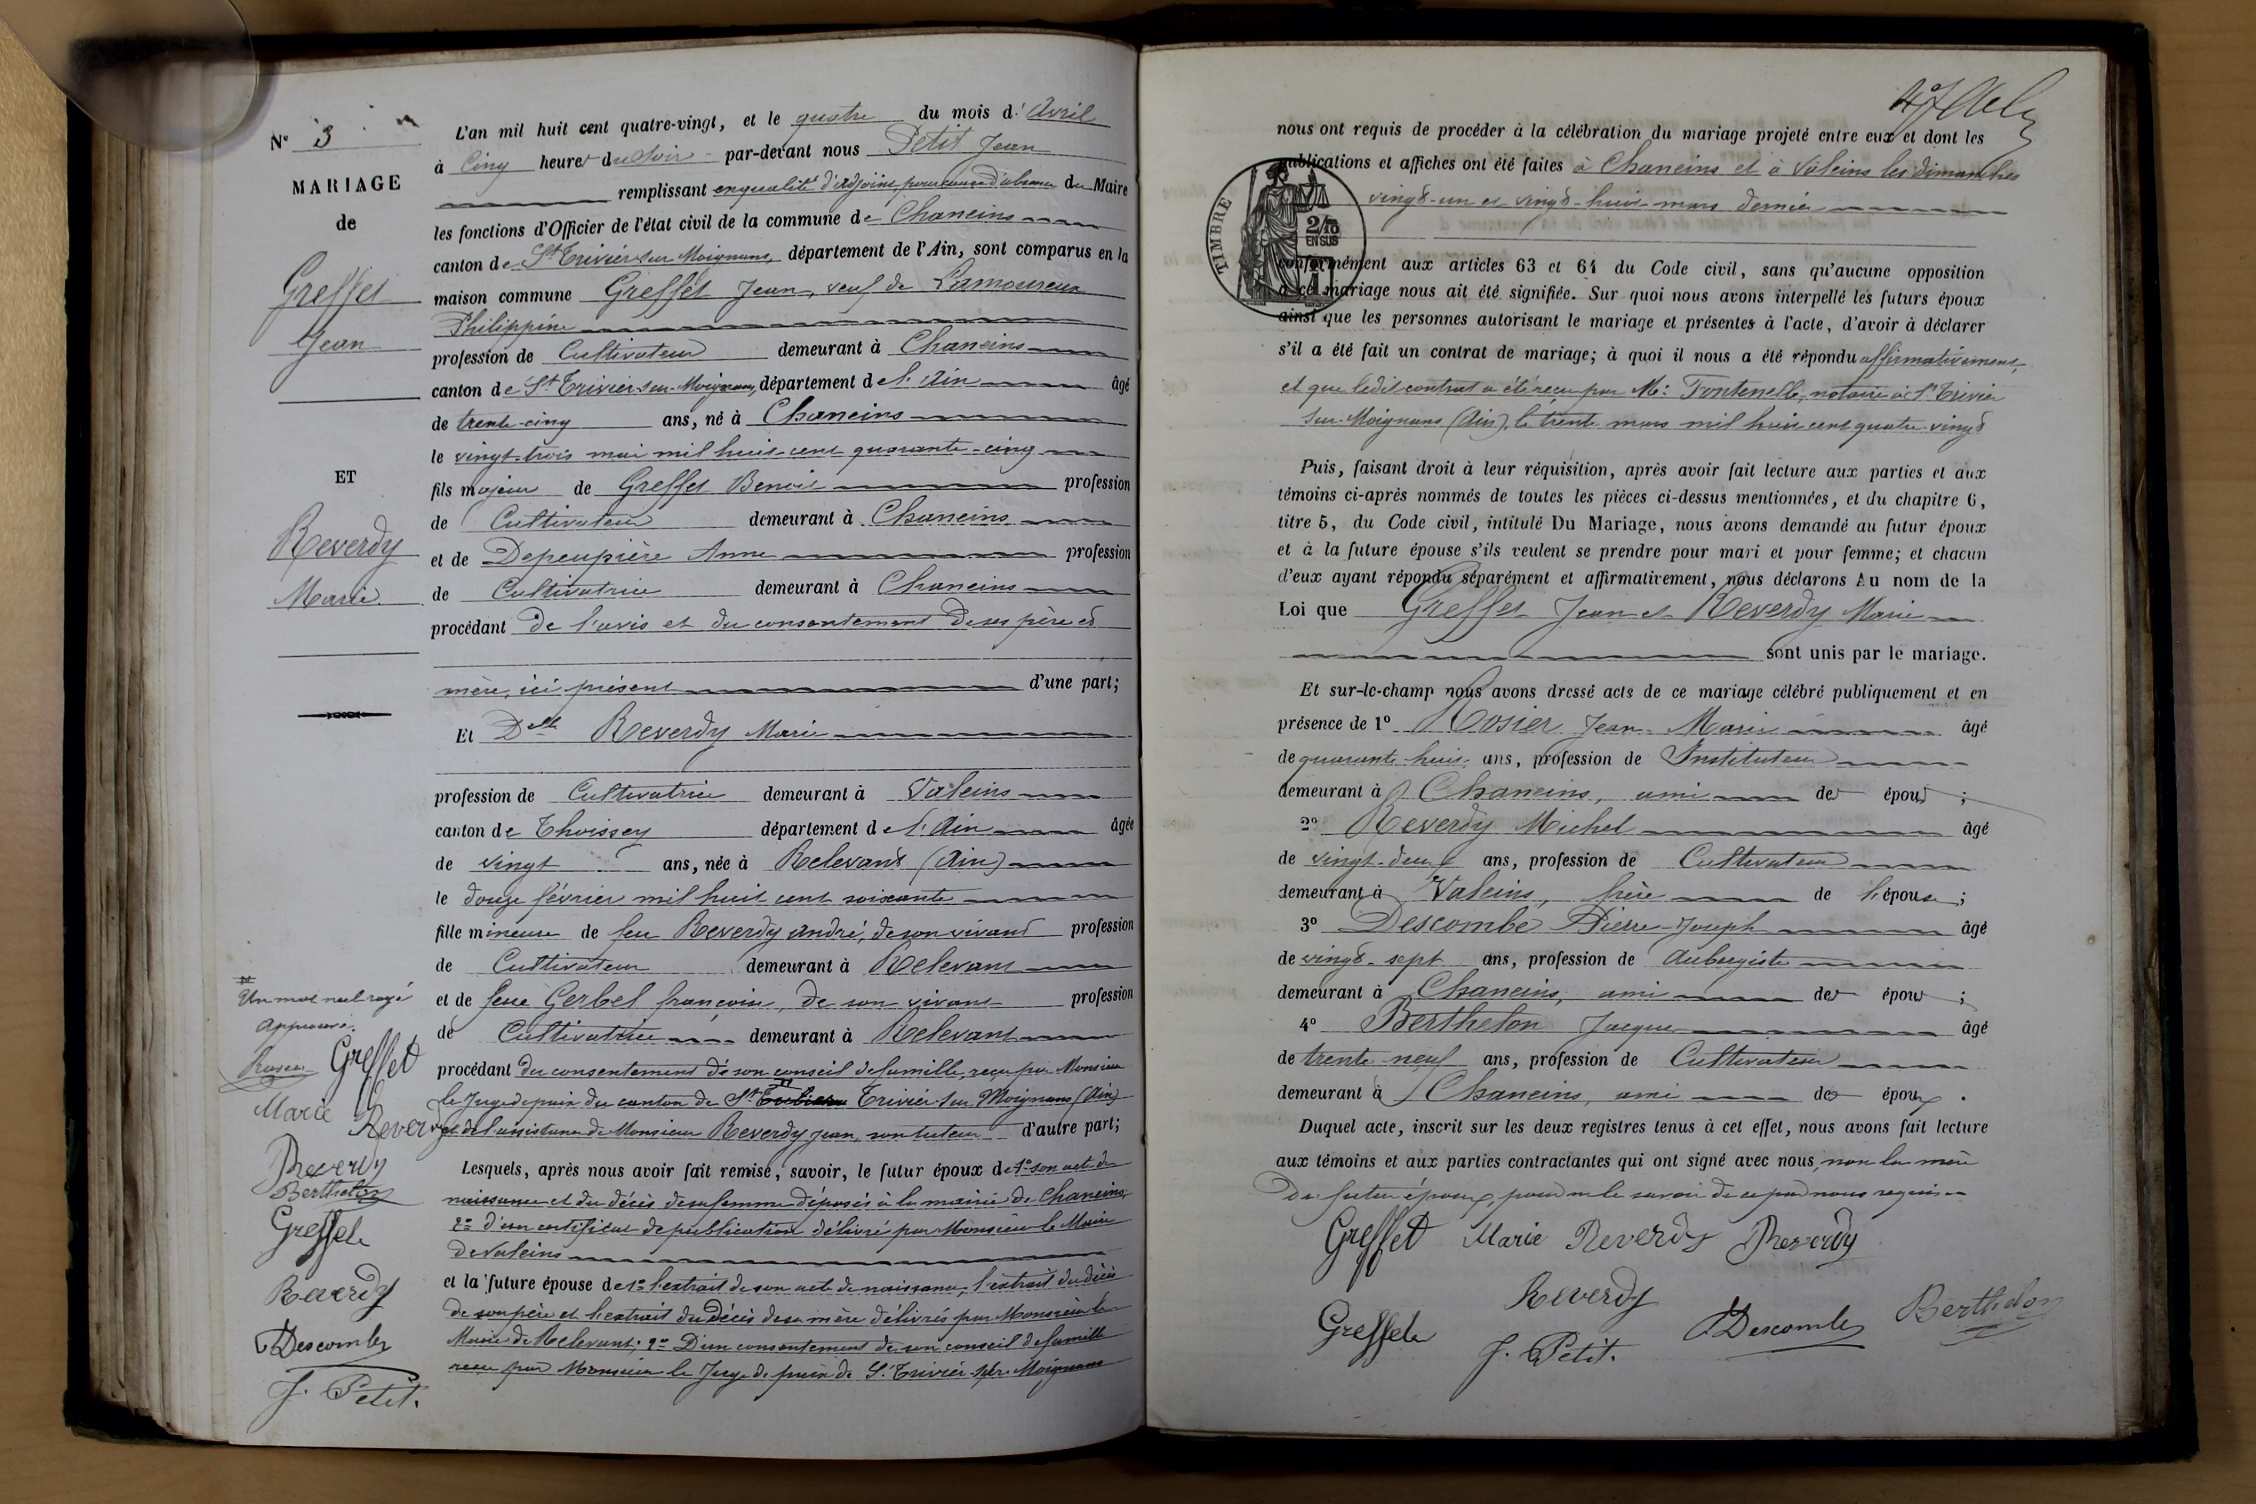 N° 3
MARIAGE
de
Greffet
Jean
ET
Reverdy
Marie
Un mot nul rayé
Approuvé.
Greffet
Marie Reverdy
Reverdy
Berthelon
Greffet
Reverdy
Descombe
J. Petit.
L'an mil huit cent quatre-vingt, et le quatre du mois d'Avril
à Cinq heures du Soir par-devant nous Petit Jean
remplissant en qualité d'adjoint pour cause d'absence du Maire
les fonctions d'Officier de l'état civil de la commune de Chaneins
canton de St Trivier sur Moignans, département de l'Ain, sont comparus en la
maison commune Greffet Jean, veuf de Lamoureux
Philippine
profession de Cultivateur demeurant à Chaneins
canton de St Trivier-sur-Moignans, département de l'Ain âgé
de trente-cinq ans, né à Chaneins
le vingt-trois mai mil huit cent quarante-cinq
fils majeur de Greffet Benoit profession
de Cultivateur demeurant à Chaneins
et de Depeupière Anne profession
de Cultivatrice demeurant à Chaneins
procédant De l'avis et du consentement de ses père et
mère, ici présent d'une part;
Et Delle Reverdy Marie
profession de Cultivatrice demeurant à Valeins
canton de Thoissey département de l'Ain âgée
de vingt ans, née à Relevant (Ain)
le douze février mil huit cent soixante
fille mineure de feu Reverdy André, de son vivant profession
de Cultivateur demeurant à Relevant
et de feue Gerbel françoise, de son vivant profession
de Cultivatrice demeurant à Relevant
procédant du consentement de son conseil de famille, reçu par Monsieur
le Juge de paix du canton de St Trivier sur Moignans (Ain)
et de l'assistance de Monsieur Reverdy Jean, son tuteur d'autre part;
Lesquels, après nous avoir fait remise, savoir, le futur époux de 1° son acte de
naissance et du décès de sa femme déposés à la mairie de Chaneins,
2° d'un certificat de publication délivré par Monsieur le Maire
de Valeins
et la future épouse de 1° l'extrait de son acte de naissance, l'extrait du décès
de son père et l'extrait du décès de sa mère délivrés par Monsieur le
Maire de Relevant; 2° D'un consentement de son conseil de famille
reçu par Monsieur le Juge de paix de St Trivier sur Moignans
nous ont requis de procéder à la célébration du mariage projeté entre eux et dont les
publications et affiches ont été faites à Chaneins et à Valeins les dimanches
vingt-un et vingt-huit mars dernier
TIMBRE
2/10
EN SUS
conformément aux articles 63 et 64 du Code civil, sans qu'aucune opposition
à ce mariage nous ait été signifiée. Sur quoi nous avons interpellé les futurs époux
ainsi que les personnes autorisant le mariage et présentes à l'acte, d'avoir à déclarer
s'il a été fait un contrat de mariage; à quoi il nous a été répondu affirmativement,
et que ledit contrat a été reçu par Me Fontenelle, notaire à St Trivier
sur-Moignans (Ain), le trente mars mil huit cent quatre-vingt
Puis, faisant droit à leur réquisition, après avoir fait lecture aux parties et aux
témoins ci-après nommés de toutes les pièces ci-dessus mentionnées, et du chapitre 6,
titre 5, du Code civil, intitulé Du Mariage, nous avons demandé au futur époux
et à la future épouse s'ils veulent se prendre pour mari et pour femme; et chacun
d'eux ayant répondu séparément et affirmativement, nous déclarons Au nom de la
Loi que Greffet Jean et Reverdy Marie
sont unis par le mariage.
Et sur-le-champ nous avons dressé acte de ce mariage célébré publiquement et en
présence de 1° Rosier Jean-Marie âgé
de quarante huit ans, profession de Instituteur
demeurant à Chaneins, ami des époux;
2° Reverdy Michel âgé
de vingt-deux ans, profession de Cultivateur
demeurant à Valeins, frère de l'épouse;
3° Descombe Pierre-Joseph âgé
de vingt-sept ans, profession de Aubergiste
demeurant à Chaneins, ami des époux;
4° Berthelon Jacques âgé
de trente-neuf ans, profession de Cultivateur
demeurant à Chaneins, ami des époux.
Duquel acte, inscrit sur les deux registres tenus à cet effet, nous avons fait lecture
aux témoins et aux parties contractantes qui ont signé avec nous, non la mère
du futur époux, pour ne le savoir de ce par nous requise
Greffet Marie Reverdy Reverdy
Reverdy
Greffet J. Petit. Descombe Berthelon